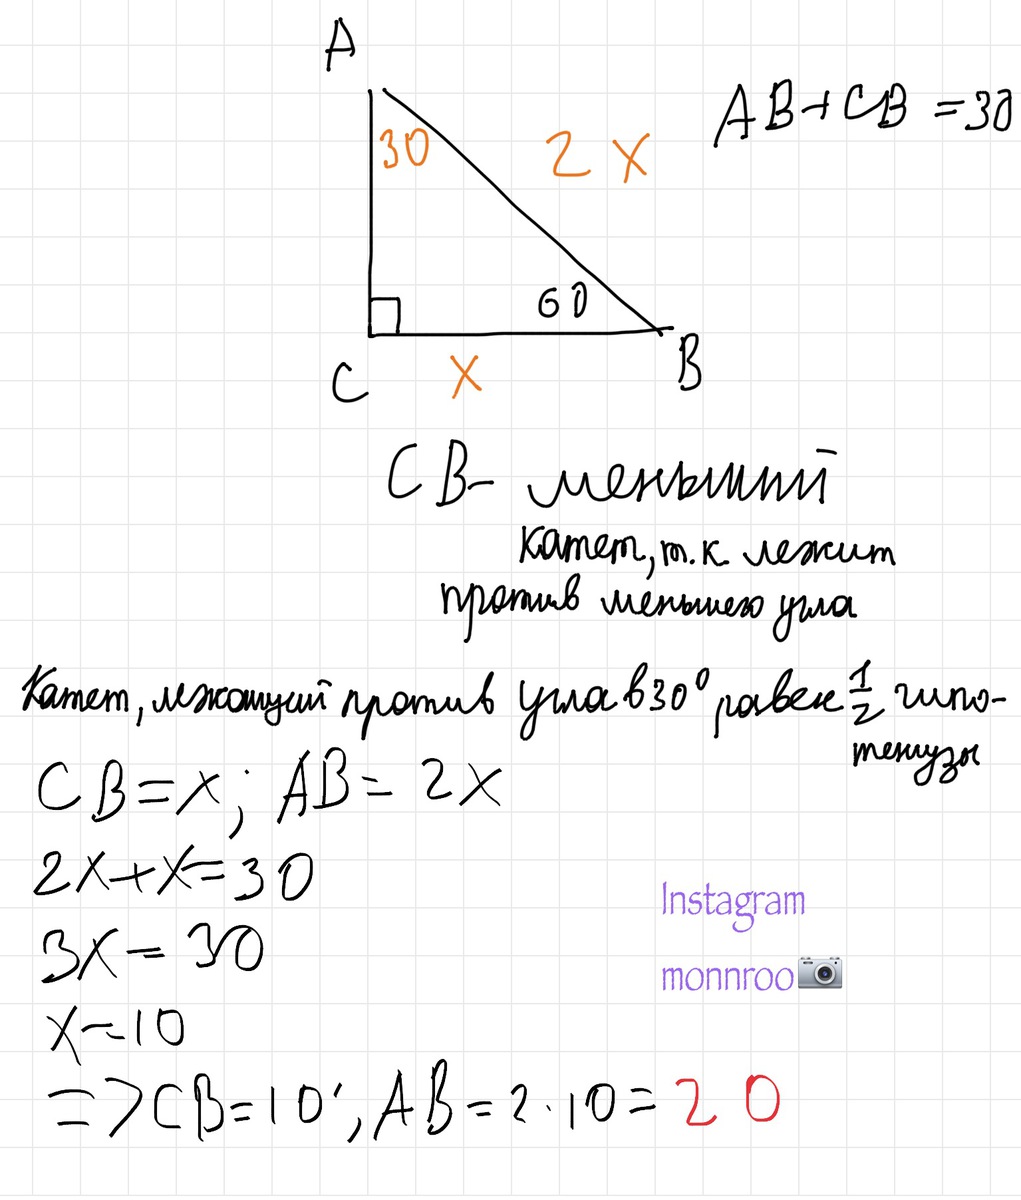 A
AB+CB =30
30
2 x
60
C
x
B
CB- меньший
катет, т.к. лежит
против меньшего угла
Катет, лежащий против угла в 30° равен 1/2 гипо-
тенузы
CB=x; AB= 2x
2x+x=30
3x=30
x=10
=>CB=10; AB=2·10=20
Instagram
monnroo